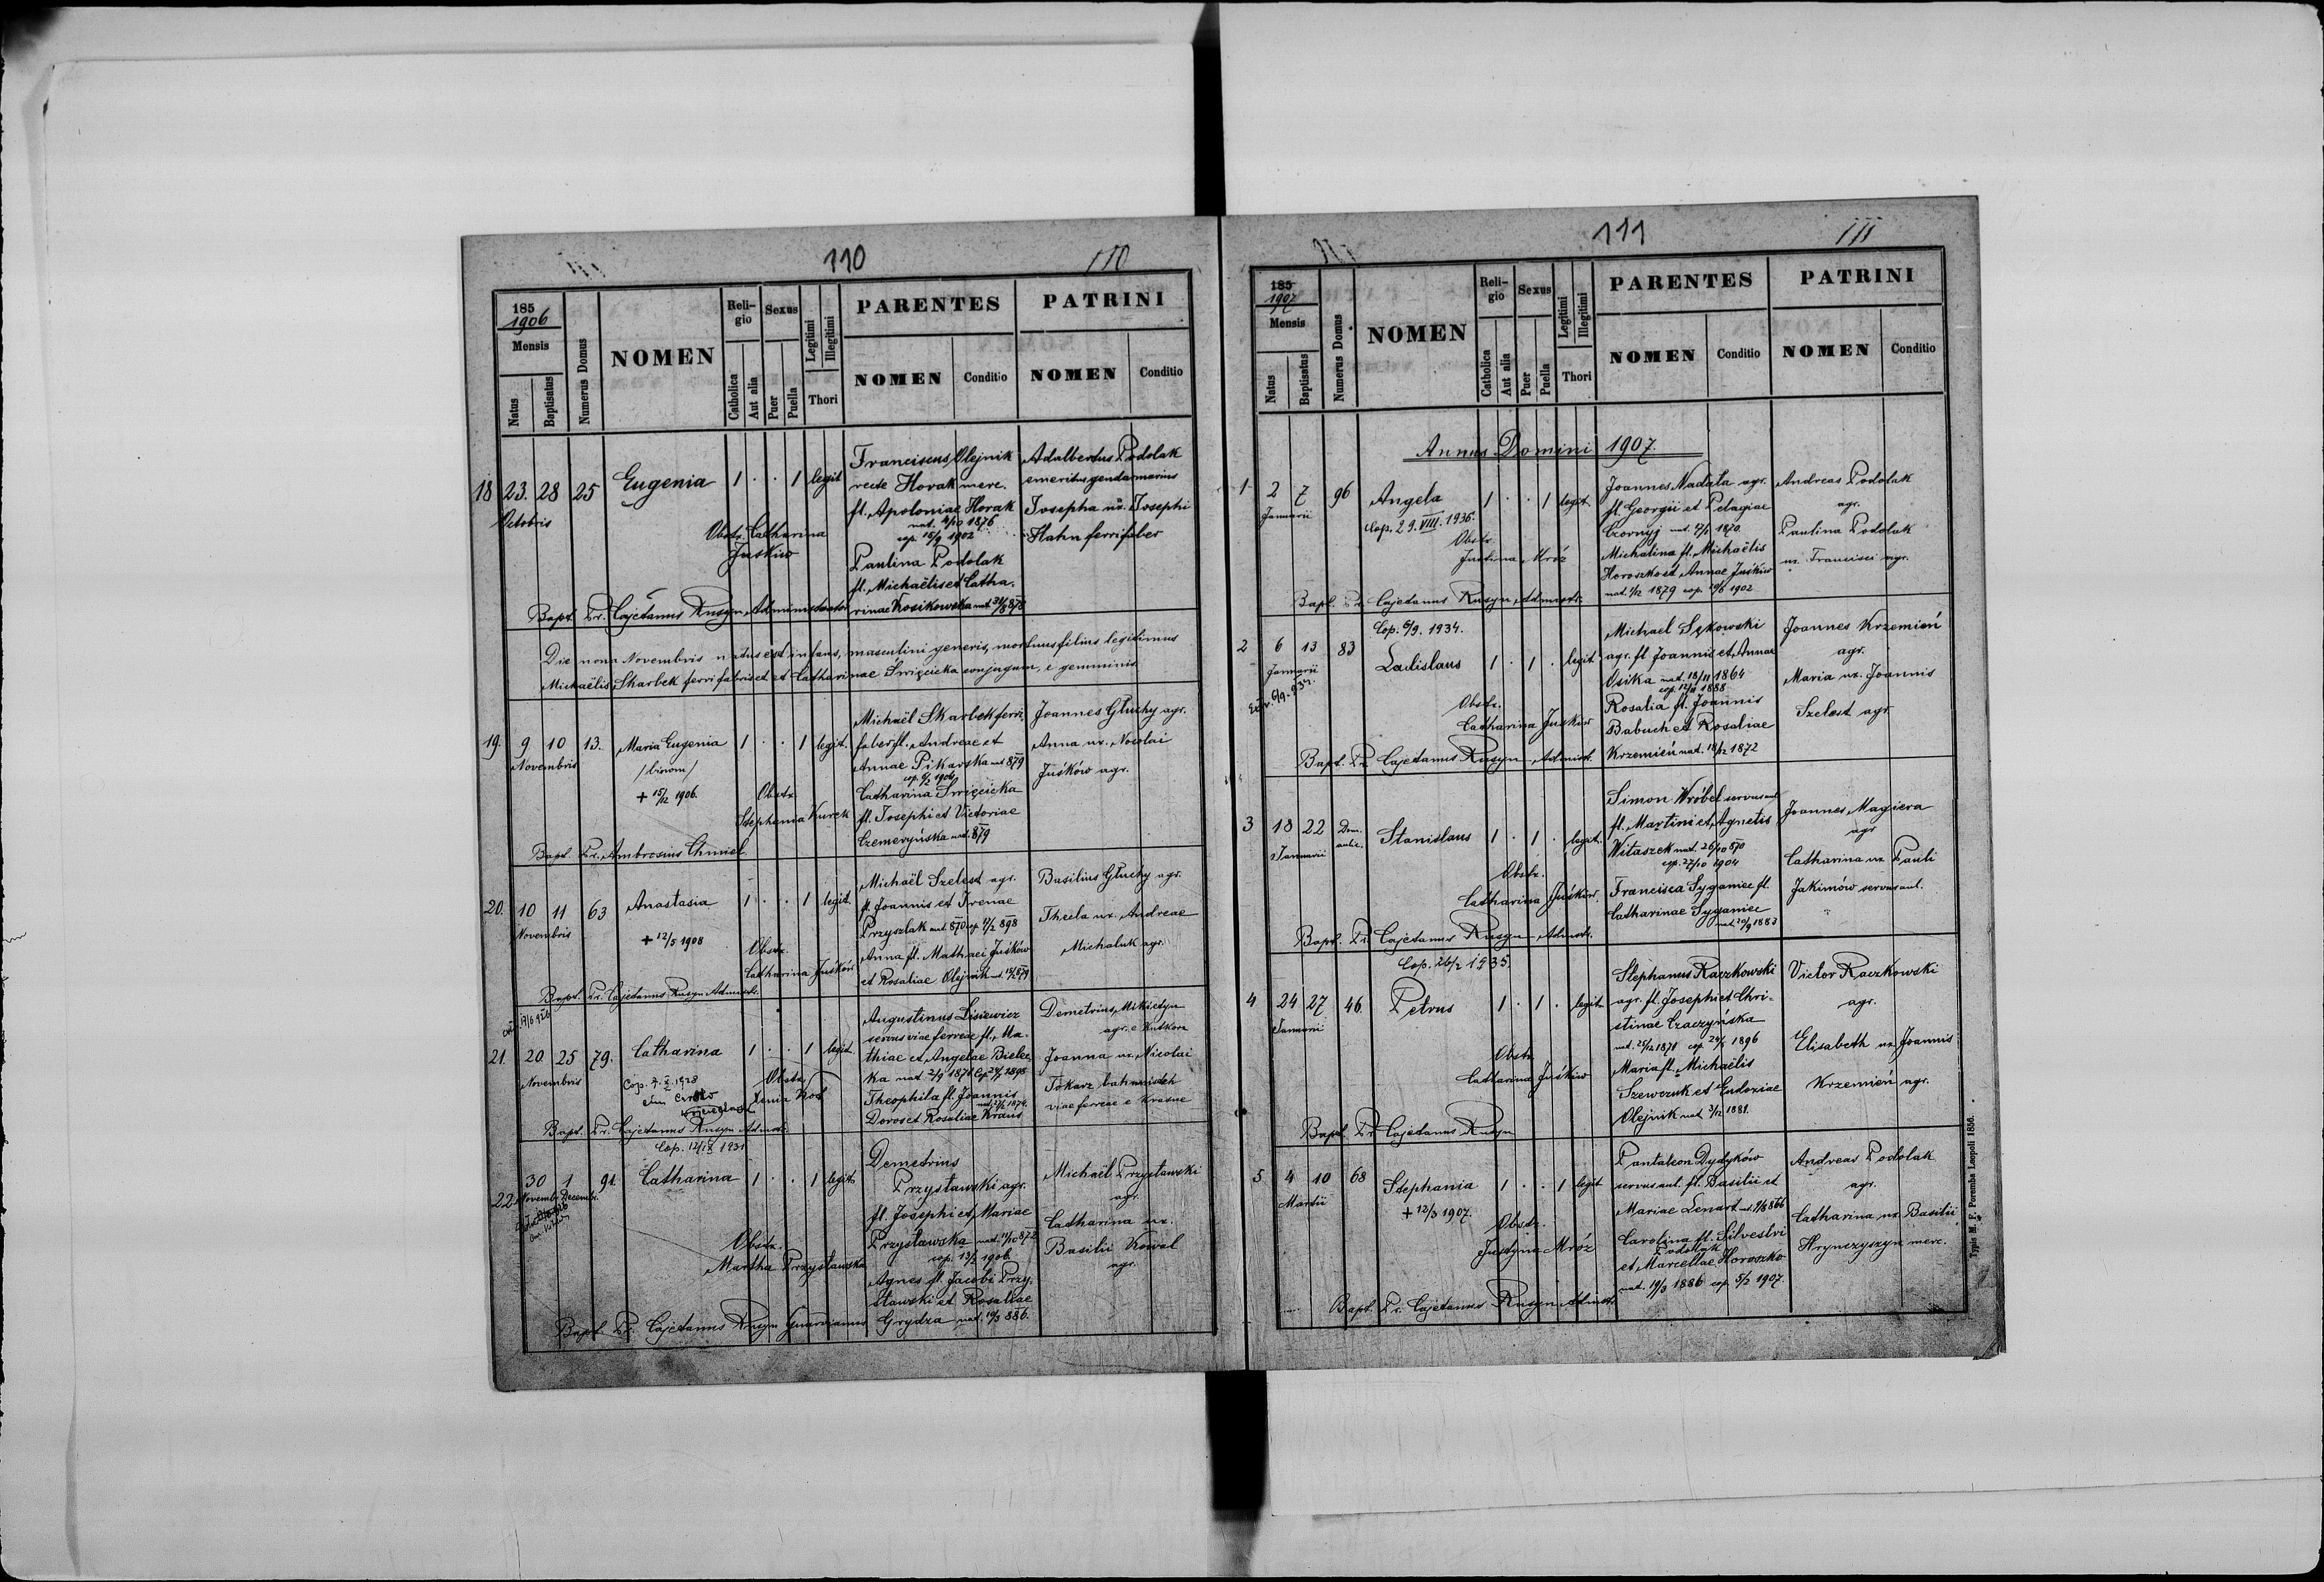 110
110
185
1906
Mensis
Natus
Baptisatus
Numerus Domus
NOMEN
Reli-
gio
Catholica
Aut alia
Sexus
Puer
Puella
Legitimi
Illegitimi
Thori
PARENTES
NOMEN
Conditio
PATRINI
NOMEN
Conditio
18 23. 28 25 Eugenia 1 . . 1 legit
Octobris
Obstr. Catharina
Juśków
Franciscus Olejnik
recte Horak merc.
fl. Apoloniae Horak
nat. 4/10 1876
cop. 15/9 1902
Paulina Podolak
fl. Michaëlis et Catha-
rinae Kosikowska
Adalbertus Podolak
emeritus gendarmarius
Josepha ux. Josephi
Hahn ferrifaber
Bapt. Fr. Cajetanus Rusyn Administrator
Die nona Novembris natus est infans, masculini generis, mortuus filius legitimus
Michaëlis Skarbek ferrifabri et Catharinae Święcicka conjugum, e gemminis
19. 9 10 13. Maria Eugenia 1 . . 1 legit.
Novembris
/binom/
+ 15/12 1906.
Obstr.
Stephania Kurek
Michaël Skarbek ferri-
faber fl. Andreae et
Annae Pikarska nat 879
1906
Catharina Święcicka
fl. Josephi et Victoriae
Czemeryńska nat. 879
Joannes Głuchy agr.
Anna ux. Nicolai
Juśków agr.
Bapt. Fr. Ambrosius Chmiel
20. 10 11 63 Anastasia 1 . . 1 legit.
Novembris
+ 12/5 1908
Obstr.
Catharina Juśków
Michaël Szelest agr.
fl. Joannis et Irenae
Przyszlak nat. 870 cop. 11/2 898
Anna fl. Mathaei Juśków
et Rosaliae Olejnik
Basilius Głuchy agr.
Thecla ux. Andreae
Michaluk agr.
Bapt. Fr. Cajetanus Rusyn Admstr.
21. 20 25 79. Catharina 1 . . 1 legit.
Novembris
Cop. 1928
cum
Obstr.
Xenia Kod
Augustinus Lisiewicz
servus viae ferreae fl. Ma-
thiae et Angelae Bielec-
ka nat 2/9 1871
Theophila fl. Joannis
Doros et Rosaliae Kraus
Demetrius Mikietyn
agr. e Kutkorz
Joanna ux. Nicolai
Tokarz bahnwächt
viae ferreae e Krasne
Bapt. Fr. Cajetanus Rusyn Admstr.
Cop. 1931
22 30 1 91. Catharina 1 . . 1 legit.
Novembr. Decembr.
Obstr.
Martha Przystawska
Demetrius
Przystawski agr.
fl. Josephi et Mariae
Przystawska nat. 11/10 872
cop. 13/2 1906
Agnes fl. Jacobi Przy-
stawski et Rosaliae
Grydza nat. 886.
Michaël Przystawski
agr.
Catharina ux.
Basilii Kowal
agr.
Bapt. Fr. Cajetanus Rusyn Guardianus
111
111
185
1907
Mensis
Natus
Baptisatus
Numerus Domus
NOMEN
Reli-
gio
Catholica
Aut alia
Sexus
Puer
Puella
Legitimi
Illegitimi
Thori
PARENTES
NOMEN
Conditio
PATRINI
NOMEN
Conditio
Annus Domini 1907.
1 2 7 96 Angela 1 . . 1 legit.
Januarii
Cop. 29. VIII. 1936.
Obstr.
Justina Mróz
Joannes Nadała agr.
fl. Georgii et Pelagiae
Czornyj 1870.
Michalina fl. Michaëlis
Horoszko et Annae Juśków
nat. 1/12 1879 cop. 1902
Andreas Podolak
agr.
Paulina Podolak
ux. Francisci agr.
Bapt. Fr. Cajetanus Rusyn Admstr.
Cop. 6/9. 1934.
2 6 13 83 Ladislaus 1 . 1 . legit.
Januarii
Obstr.
Catharina Juśków
Michael Sękowski
agr. fl. Joannis et Annae
Osika nat. 18/11 1864
1888
Rosalia fl. Joannis
Babuch et Rosaliae
Krzemień nat. 18/12 1872
Joannes Krzemień
agr.
Maria ux. Joannis
Szelest agr
Bapt. Fr. Cajetanus Rusyn Admstr.
3 18 22 Dom. aulic. Stanislaus 1 . 1 . legit.
Januarii
Obstr.
Catharina Juśków.
Simon Wróbel servus aul
fl. Martini et Agnetis
Witaszek nat. 26/10 870
cop. 27/10 1904
Francisca Syganiec fl.
Catharinae Syganiec
1883
Joannes Magiera
agr
Catharina ux Pauli
Jakimów servus aul.
Bapt. Fr. Cajetanus Rusyn Admstr.
Cop. 26/2 1935.
4 24 27 46. Petrus 1 . 1 . legit.
Januarii
Obstr.
Catharina Juśków
Stephanus Raczkowski
agr. fl. Josephi et Chri-
stinae Czaczyńska
1871 cop. 1896
Maria fl. Michaëlis
Szewczuk et Eudoxiae
Olejnik nat 3/12 1881.
Victor Raczkowski
agr.
Elisabeth ux. Joannis
Krzemień agr.
Bapt. Fr. Cajetanus Rusyn
5 4 10 68 Stephania 1 . . 1 legit
Martii
+ 12/3 1907.
Obstr.
Justyna Mróz
Pantaleon Dydyków
servus aul. fl. Basilii et
Mariae Lenart 866
Carolina fl. Silvestri
Podolak
et Marcellae Horoszko
nat. 19/3 1886 cop. 5/2 1907.
Andreas Podolak
agr.
Catharina ux. Basilii
Hrynczyszyn merc.
Bapt. Fr. Cajetanus Rusyn Admstr.
Typis M. F. Poremba Leopoli 1855.